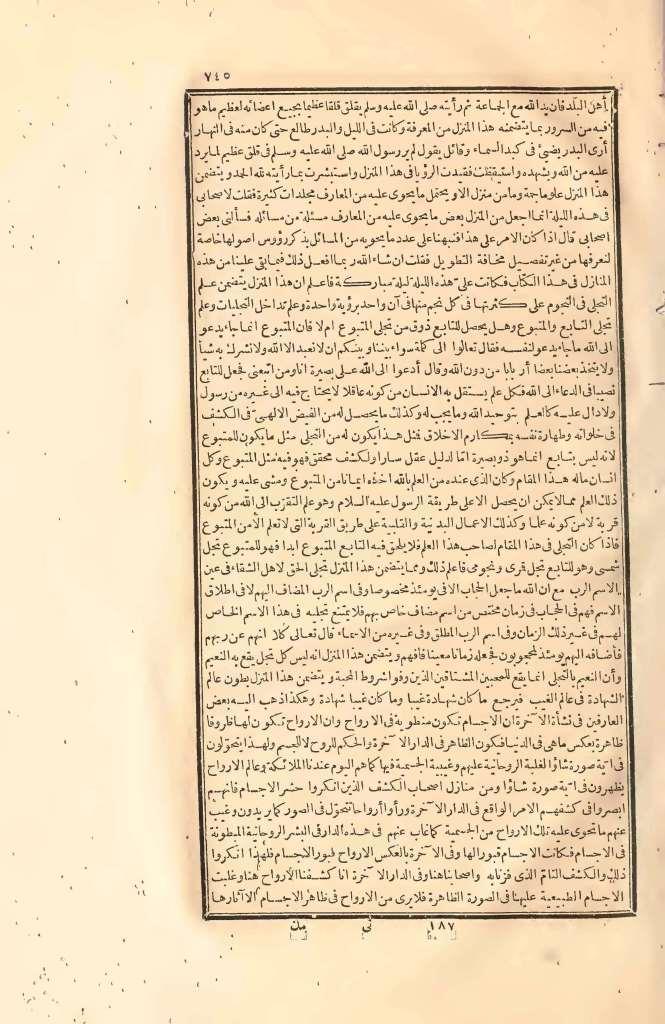 ٧٤٥
أهل البلد فان يد الله مع الجماعة ثم رأيته صلى الله عليه وسلم يقلق قلقا عظيما بجميع اعضائه لعظيم ما هو
فيه من السرور بما يتضمنه هذا المنزل من المعرفة وكانت فى الليل والبدر طالع حتى كان منه فى النهار
أرى البدر يضئ فى كبد السماء وقائل يقول لم ير رسول الله صلى الله عليه وسلم فى قلق عظيم لما يرد
عليه من الله ويشهده واستيقظت فقيدت الرؤيا فى هذا المنزل واستبشرت بما رأيته لله الحمد ويتضمن
هذا المنزل علوما جمة وما من منزل الا ويحتمل ما يحوى عليه من المعارف مجلدات كثيرة فقلت لاصحابى
فى هذه الليلة انما اجعل من المنزل بعض ما يحوى عليه من المعارف مسئلة من مسائله فسألنى بعض
اصحابى قال اذا كان الامر على هذا فنبهنا على عدد ما يحويه من المسائل بذكر رؤوس اصولها خاصة
لنعرفها من غير تفصيل مخافة التطويل فقلت ان شاء الله ربما افعل ذلك فيما بقى علينا من هذه
المنازل فى هذا الكتاب فكانت على هذه الليلة ليلة مباركة فاعلم ان هذا المنزل يتضمن علم
التجلى فى النجوم على كثرتها فى كل نجم منها فى آن واحد برؤية واحدة وعلم تداخل التجليات وعلم
تجلى التابع والمتبوع وهل يحصل للتابع ذوق من تجلى المتبوع ام لا فان المتبوع انما جاء يدعو
الى الله ما جاء يدعو لنفسه فقال تعالوا الى كلة سواء بيننا وبينكم ان لا نعبد الا الله ولا نشرك به شيأ
ولا يتخذ بعضنا بعضا أربابا من دون الله وقال أدعوا الى الله على بصيرة انا ومن اتبعنى فجعل للتابع
نصيبا فى الدعاء الى الله فكل علم يستقل به الانسان من كونه عاقلا لا يحتاج فيه الى غيره من رسول
ولا دال عليه كالعلم بتوحيد الله وما يجب له وكذلك ما يحصل له من الفيض الالهىّ فى الكشف
فى خلواته وطهارة نفسه بمكارم الاخلاق فمثل هذا يكون له من التجلى مثل ما يكون للمتبوع
لانه ليس بتابع انما هو ذو بصيرة امّا لدليل عقل سار او لكشف محقق فهو فيه مثل المتبوع وكل
انسان ماله هذا المقام وكان الذى عنده من العلم بالله أخذه ايمانا من المتبوع ومشى عليه ويكون
ذلك العلم مما لا يمكن ان يحصل الا على طريقة الرسول عليه السلام وهو علم التقرب الى الله من كونه
قربة لا من كونه علما وكذلك الاعمال البدنية والقلبية على طريق القربة التى لا تعلم الا من المتبوع
فاذا كان التجلى فى هذا المقام لصاحب هذا العلم فلا يلحق فيه التابع المتبوع ابدا فهو للمتبوع تجل
شمسى وهو للتابع تجل قمرى ونجومى فاعلم ذلك ومما يتضمن هذا المنزل تجلى الحق لاهل الشقاء فى عين
الاسم الرب مع ان الله ما جعل الحجاب الا فى يومئذ مخصوصا وفى اسم الرب المضاف اليهم لا فى اطلاق
الاسم فهم فى الحجاب فى زمان مختص من اسم مضاف خاص بهم فلا يمتنع تجليه فى هذا الاسم الخاص
لهم فى غير ذلك الزمان وفى اسم الرب المطلق وفى غيره من الاسماء قال تعالى كلا انهم عن ربهم
فأضافه اليهم يومئذ لمحجوبون فجعله زمانا معينا فافهم ويتضمن هذا المنزل انه ليس كل تجل يقع به النعيم
وأن النعيم بالتجلى انما يقع للمحبين المشتاقين الذين وفوا شروط المحبة ويتضمن هذا المنزل بطون عالم
الشهادة فى عالم الغيب فيرجع ما كان شهادة غيبا وما كان غيبا شهادة وهكذا ذهب اليه بعض
العارفين فى نشأة الآخرة ان الاجسام تكون منطوية فى الارواح وان الارواح تكون لها ظروفا
ظاهرة بعكس ما هى فى الدنيا فيكون الظاهر فى الدار الآخرة والحكم للروح لا للجسم ولهذا يتحوّلون
فى اية صورة شاؤا لغلبة الروحانية عليهم وغيبية الجسمية فيها كما هم اليوم عندنا الملائكة وعالم الارواح
يظهرون فى اية صورة شاؤا ومن منازل اصحاب الكشف الذين انكروا حشر الاجسام فانهم
ابصروا فى كشفهم الامر الواقع فى الدار الآخرة ورأوا أرواحا تتحوّل فى الصور كما يريدون وغيب
عنهم ما تحوى عليه تلك الارواح من الجسمية كما غاب عنهم فى هذه الدار فى البشر الروحانية المبطونة
فى الاجسام فكانت الاجسام قبورا لها وفى الآخرة بالعكس الارواح قبور الاجسام فلهذا انكروا
ذلك والكشف التام الذى فزنا به واصحابنا هنا وفى الدار الآخرة انا كشفنا الارواح هنا وغلبت
الاجسام الطبيعية عليها فى الصورة الظاهرة فلا يرى من الارواح فى ظاهر الاجسام الا آثارها
١٨٧ نى مك